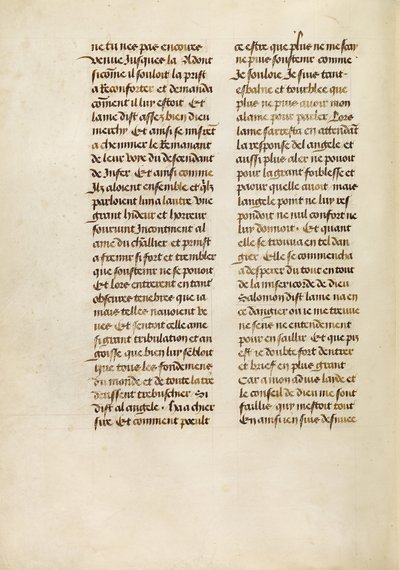 ne tu nes pas encores
venue Jusques la Dont
sicome il souloit la prist
a Reconforter et demanda
coment il luy estoit Et
lame dist assez bien dieu
mercy Et ainsi se misrent
a cheminer le Remanant
de leur voye du descendant
de Infer Et ainsi comme
Ilz aloient ensemble et qlz
parloient lun a lautre Vne
grant hideur et horreur
seurvint Incontinent al
ame du chlier et prinst
a fremir si fort et trembler
que soustenir ne se pouoit
Et lors entrerent en tant
obscures tenebres que ia
mais telles nauoient ve
ues Et sentoit celle ame
si grant tribulation et an
goisse que bien luy sebloit
que tous les fondemens
du monde et de toute la tre
deussent trebuschier Si
dist al angele . Ha a chier
sire Et comment peult
ce estre que plus ne me scay
ne puis soustenir comme
Je souloie Je suis tant
esbahie et tourblee que
plus ne puis auoir mon
alaine pour parler Lors
lame sarresta en attendat
la response del angele et
aussi plus aler ne pouoit
pour la grant foiblesse et
paour quelle auoit mais
langele point ne luy res
pondoit ne nul confort ne
luy donnoit . Et quant
elle se trouua en tel dan
gier Elle se commencha
a desperer du tout en tout
de la misericorde de dieu
Salomon dist lame na en
ce dangier ou ie me treuue
ne sens ne entendement
pour en saillir Et que pis
est ie doubte fort dentrer
et brief en plus grant
Car a mon aduis laide et
le conseil de dieu me sont
faillis quy mestoit tout
En ainsi en suis desnuee